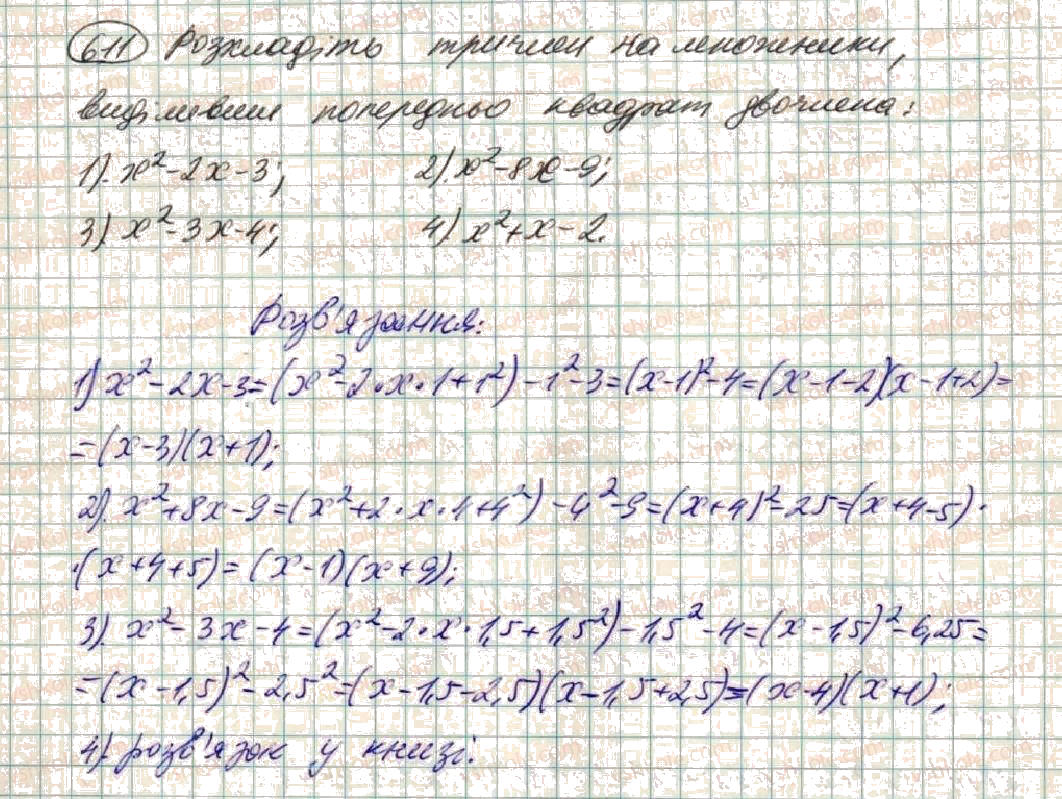 611 Розкладіть тричлен на множники,
виділивши попередньо квадрат двочлена:
1). x²-2x-3; 2). x²-8x-9;
3) x²-3x-4; 4) x²+x-2.
Розв'язання:
1) x²-2x-3=(x²-2·x·1+1²)-1²-3=(x-1)²-4=(x-1-2)(x-1+2)=
=(x-3)(x+1);
2). x²+8x-9=(x²+2·x·4+4²)-4²-9=(x+4)²-25=(x+4-5)·
·(x+4+5)=(x-1)(x+9);
3). x²-3x-4=(x²-2·x·1,5+1,5²)-1,5²-4=(x-1,5)²-6,25=
=(x-1,5)²-2,5²=(x-1,5-2,5)(x-1,5+2,5)=(x-4)(x+1);
4). розв'язок у книзі.